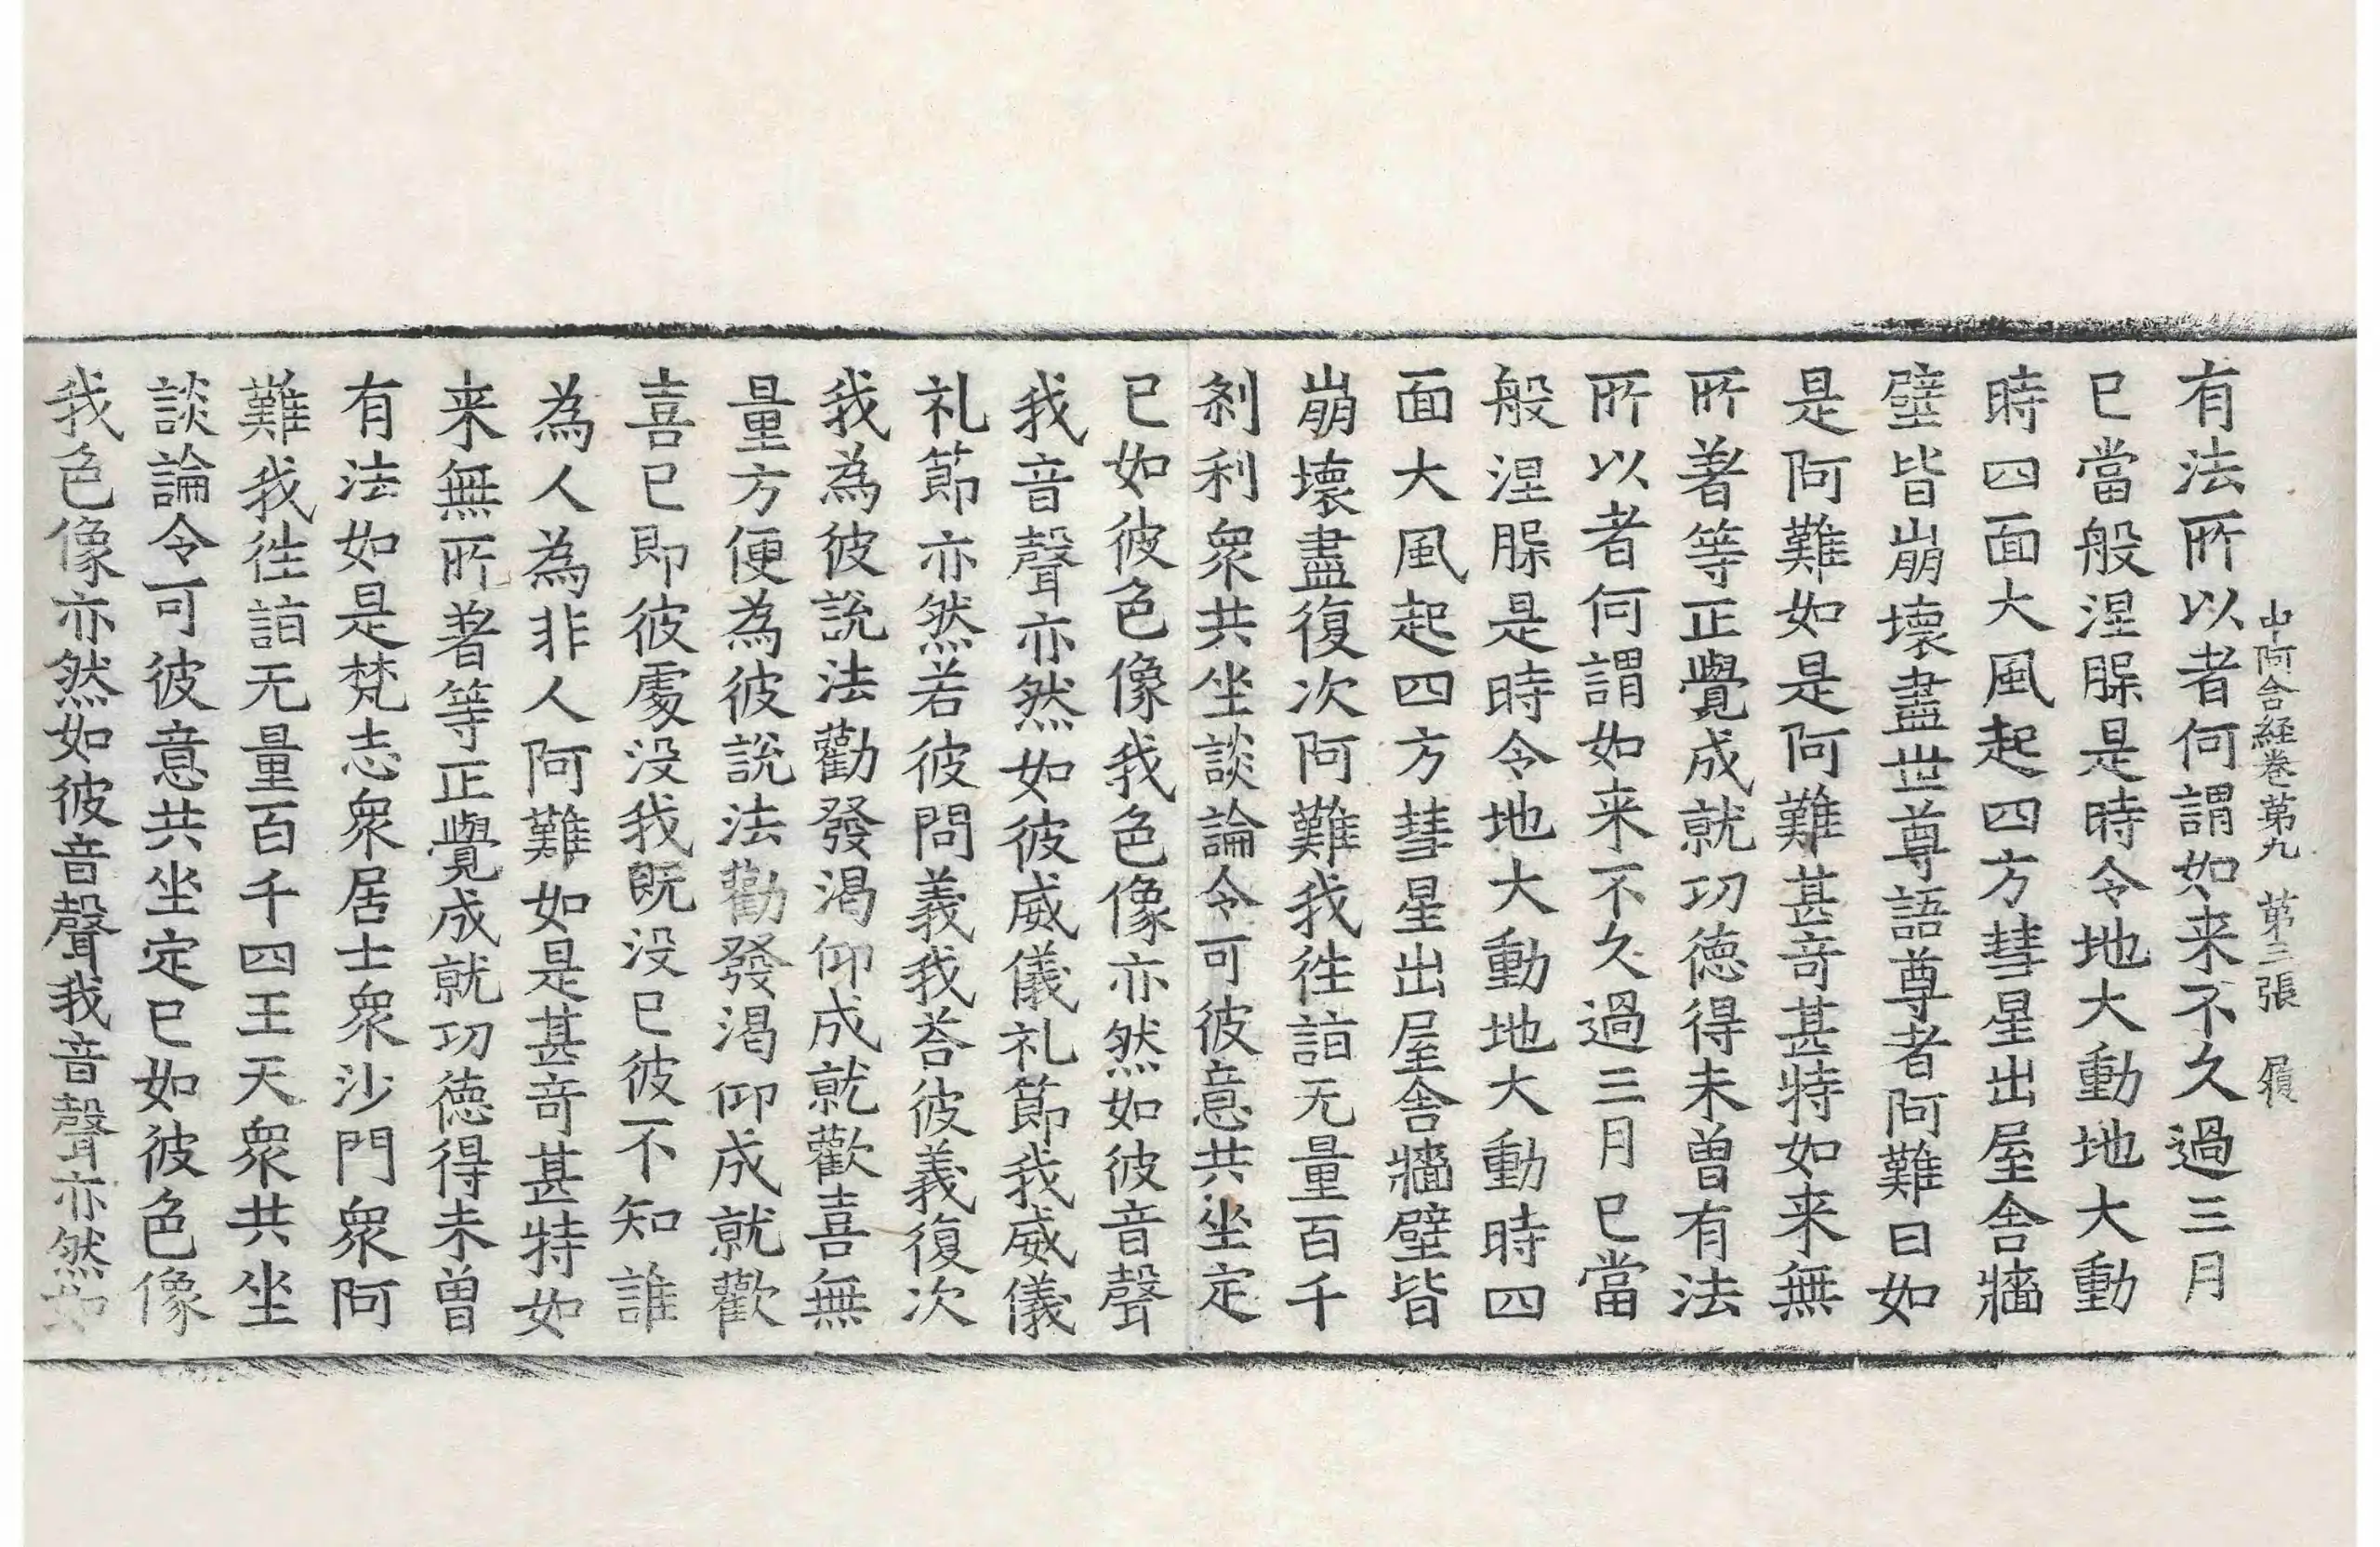 中阿含経卷苐九　苐三張　履
有法所以者何謂如来不久過三月
已當般涅槃是時令地大動地大動
時四面大風起四方彗星出屋舍牆
壁皆崩壞盡世尊語尊者阿難曰如
是阿難如是阿難甚竒甚特如来無
所著等正覺成就功德得未曽有法
所以者何謂如来不久過三月已當
般涅槃是時令地大動地大動時四
面大風起四方彗星出屋舍牆壁皆
崩壞盡復次阿難我徃詣无量百千
剎利衆共坐談論令可彼意共坐定
已如彼色像我色像亦然如彼音聲
我音聲亦然如彼威儀礼節我威儀
礼節亦然若彼問義我荅彼義復次
我為彼說法勸發渴仰成就歡喜無
量方便為彼說法勸發渴仰成就歡
喜已即彼處没我既没已彼不知誰
為人為非人阿難如是甚竒甚特如
来無所著等正覺成就功德得未曽
有法如是梵志衆居士衆沙門衆阿
難我徃詣无量百千四王天衆共坐
談論令可彼意共坐定已如彼色像
我色像亦然如彼音聲我音聲亦然如